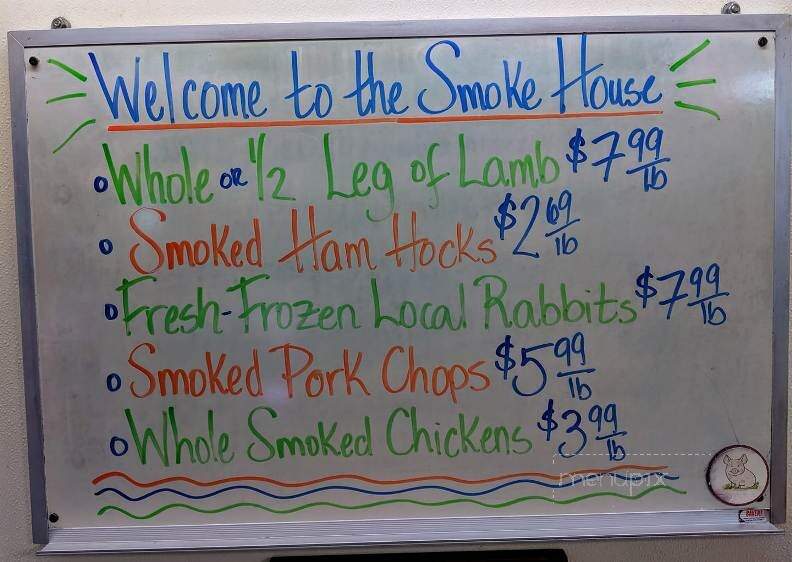 Welcome to the Smoke House
• Whole or 1/2 Leg of Lamb $7.99/lb
• Smoked Ham Hocks $2.69/lb
• Fresh-Frozen Local Rabbits $7.99/lb
• Smoked Pork Chops $5.99/lb
• Whole Smoked Chickens $3.99/lb
menupix